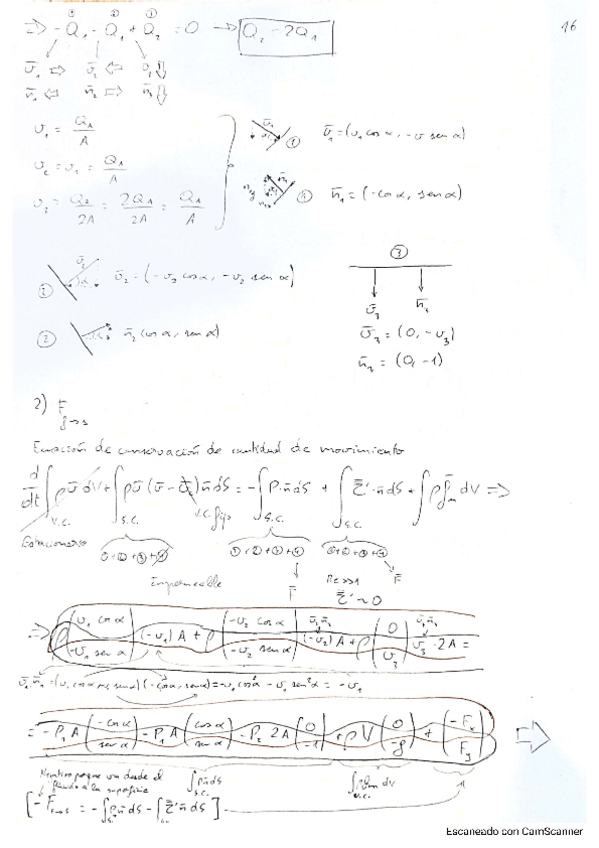 16
① ② ③
⇒ -Q₁ - Q₁ + Q₂ = 0 → Q₂ = 2Q₁
v̄₁ ⇒ v̄₂ ⇐ v̄₃ ⇓
n̄₁ ⇐ n̄₂ ⇒ n̄₃ ⇓
v₁ = Q₁/A
v₂ = v₁ = Q₁/A
v₃ = Q₂/2A = 2Q₁/2A = Q₁/A
① v̄₁ = (v₁ cos α, -v sen α)
① n̄₁ = (-cos α, sen α)
② v̄₂ = (-v₂ cos α, -v₂ sen α)
② n̄₂ (cos α, sen α)
③
v̄₃ n̄₃
v̄₃ = (0, -v₃)
n̄₃ = (0, -1)
2) F f→s
Ecuación de conservación de cantidad de movimiento
d/dt ∫ ρv̄ dV + ∫ ρv̄ (v̄ - v̄) n̄ dS = -∫ P·n̄ dS + ∫ τ̄'·n̄ dS + ∫ ρf̄ₘ dV ⇒
V.C. S.C. V.C. fijo S.C. S.C. V.C.
Estacionario ①+②+③+④ ①+②+③+④ ①+②+③+④
impermeable F̄ Re>>1 F̄
τ̄' ~ 0
⇒ ρ (v₁ cos α / -v₁ sen α) (-v₁) A + ρ (-v₂ cos α / -v₂ sen α) (-v₂) A + ρ (0 / v₃) v₃ · 2A =
v̄₁·n̄₁ = (v₁ cos α, -v₁ sen α) (-cos α, sen α) = -v₁ cos²α - v₁ sen²α = -v₁
= -P₁ A (-cos α / sen α) - P₁ A (cos α / sen α) - P₂ 2A (0 / -1) + ρV (0 / -g) + (-Fₓ / F_y) ⇒
Negativo porque va desde el
fluido a la superficie
∫ p n̄ dS S.C. ∫ ρf̄ₘ dV V.C.
[-F̄ f→s = -∫ p n̄ dS - ∫ τ̄' n̄ dS]
Escaneado con CamScanner